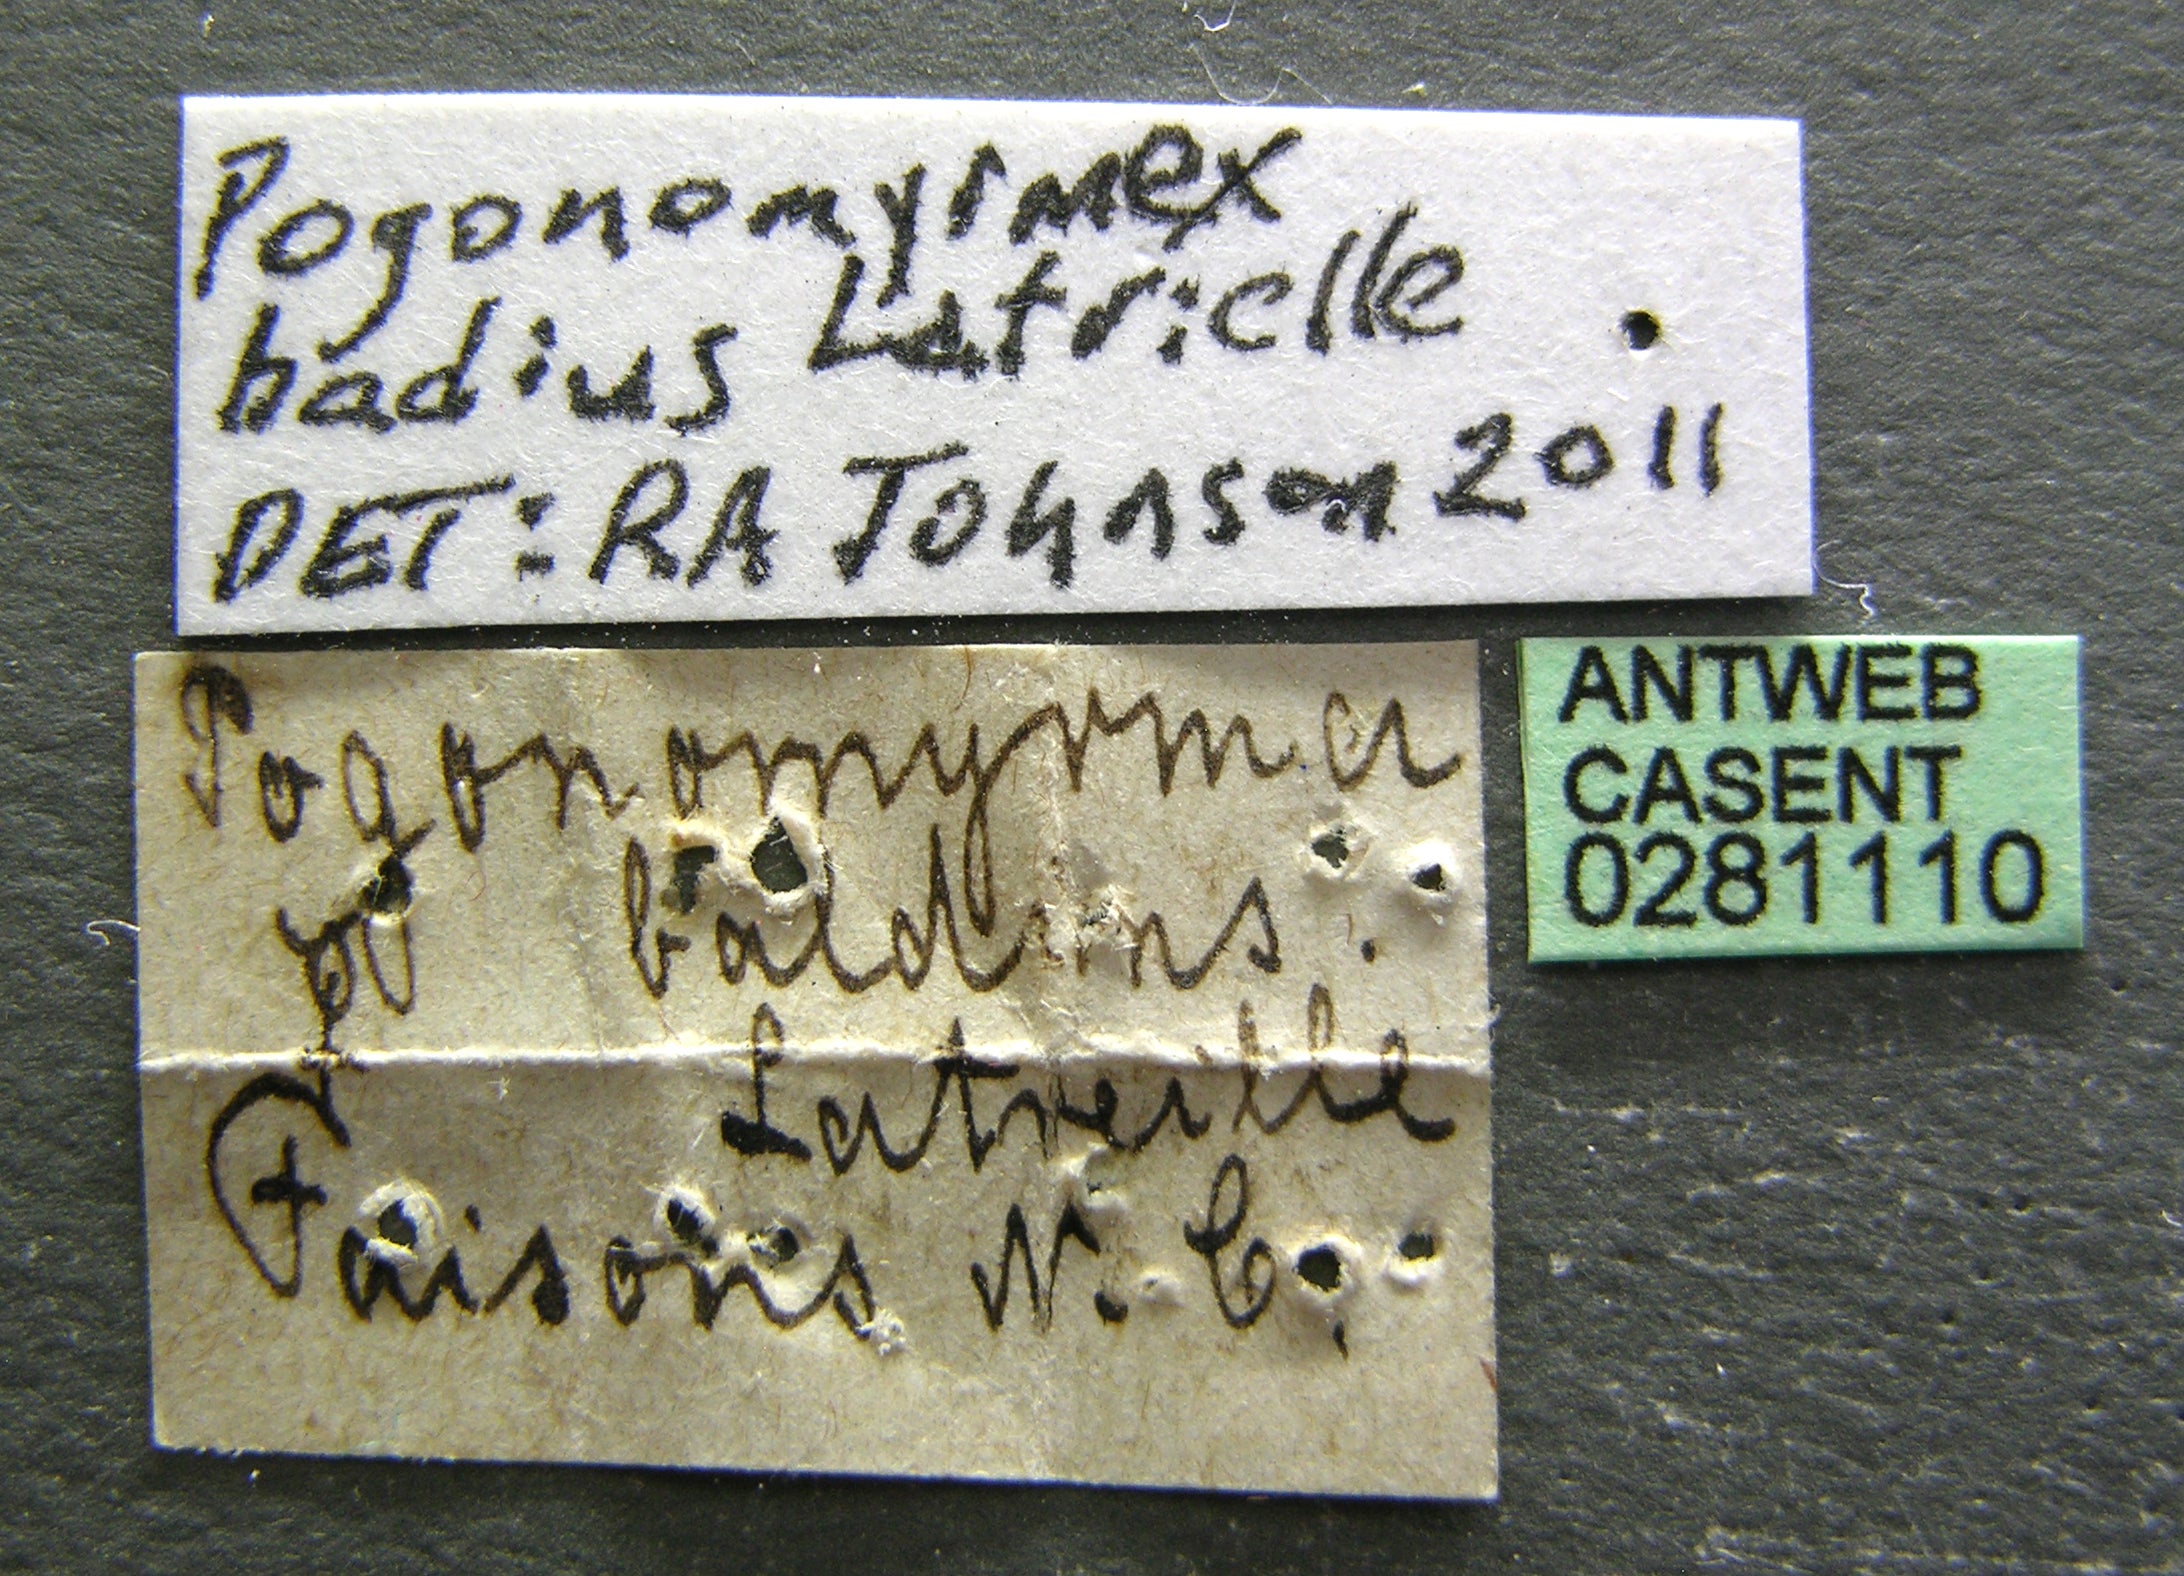 Pogonomyrmex
badius Latrielle
DET: RA Johnson 2011
Pogonomyrma
baldins.
Latreille
Faisons N. C.
ANTWEB
CASENT
0281110